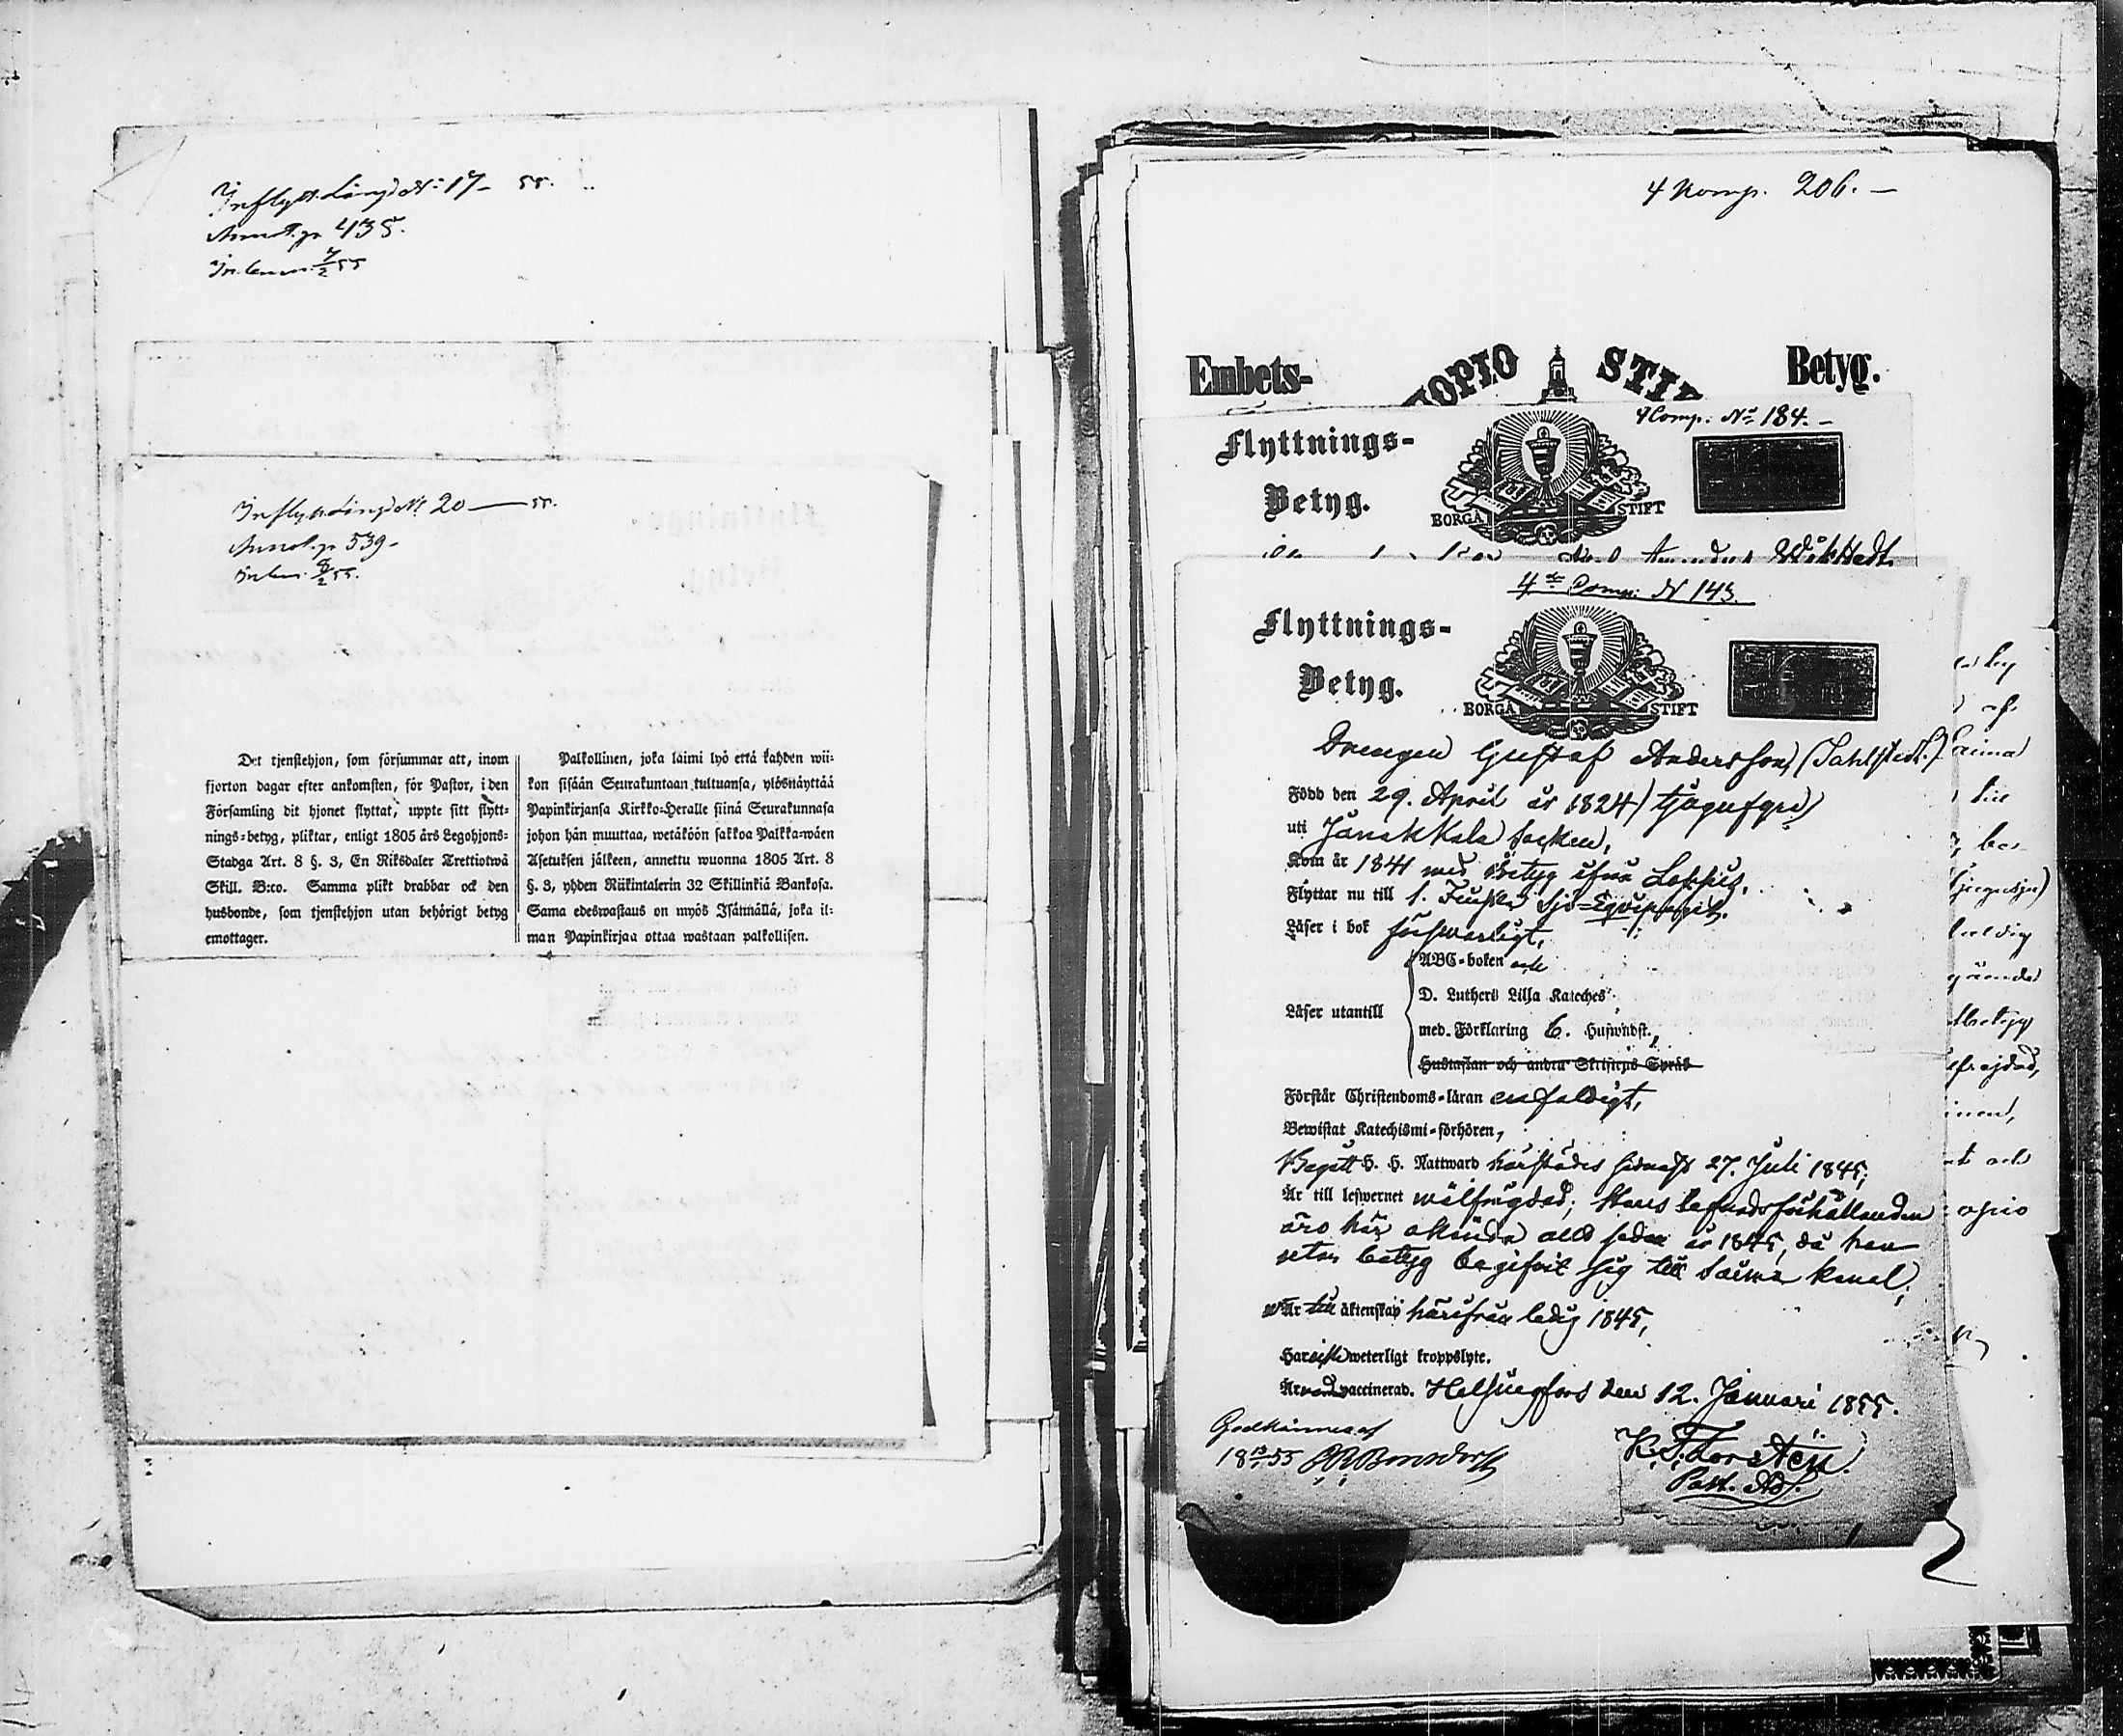 Inflytt.Längd No: 17- 55.
Annot.p. 435.
Ink. 7/2 55
Inflytt.Längd No 20 — 55.
Annot.p. 539-
8/2 55.
Det tjenstehjon, som försummar att, inom
fjorton dagar efter ankomsten, för Pastor, i den
Församling dit hjonet flyttat, uppte sitt flytt-
nings-betyg, pliktar, enligt 1805 års Legohjons-
Stadga Art. 8 §. 3, En Riksdaler Trettiotwå
Skill. B:co. Samma plikt drabbar ock den
husbonde, som tjenstehjon utan behörigt betyg
emottager.
Palkollinen, joka laimi lyö että kahden wii-
kon sisään Seurakuntaan tultuansa, ylösnäyttää
Papinkirjansa Kirkko-Heralle siinä Seurakunnasa
johon hän muuttaa, wetäköön sakkoa Palkka-wäen
Asetuksen jälkeen, annettu wuonna 1805 Art. 8
§. 3, yhden Riikintalerin 32 Skillinkiä Bankosa.
Sama edeswastaus on myös Isännällä, joka il-
man Papinkirjaa ottaa wastaan palkollisen.
4 Komp. 206. —
Embets-
OPIO STIF
Betyg.
4 Comp. No 184. -
Flyttnings-
Betyg.
BORGÅ STIFT
4de Comp. N 143.
Flyttnings-
Betyg.
BORGÅ STIFT
Drengen Gustaf Andersson, (Dahlstedt.)
Född den 29. April år 1824 (tjugufyra)
uti Janakkala Socken,
Kom år 1841 med Betyg ifrån Loppis,
Flyttar nu till 1. Finska Sjö-Equipaget.
Läser i bok försvarligt,
ABC-boken och
Läser utantill
D. Luthers Lilla Kateches
med Förklaring t. Huswudst.,
Hustaflan och andra Skriftens Språk
Förstår Christendoms-läran enfaldigt,
Bewistat Katechismi-förhören,
Begått H. H. Nattward härstädes sednast 27. Juli 1845;
Är till lefwernet wälfrägdad; Hans lefnadsförhållanden
äro här okända allt sedan år 1845, då han
utan betyg begifvit sig till Saima kanal,
Är till äktenskap härifrån ledig 1845,
Har icke weterligt kroppslyte.
Är vaccinerad. Helsingfors den 12. Januari 1855.
Godkännes af
K. F. Forstén.
Past. Adj.